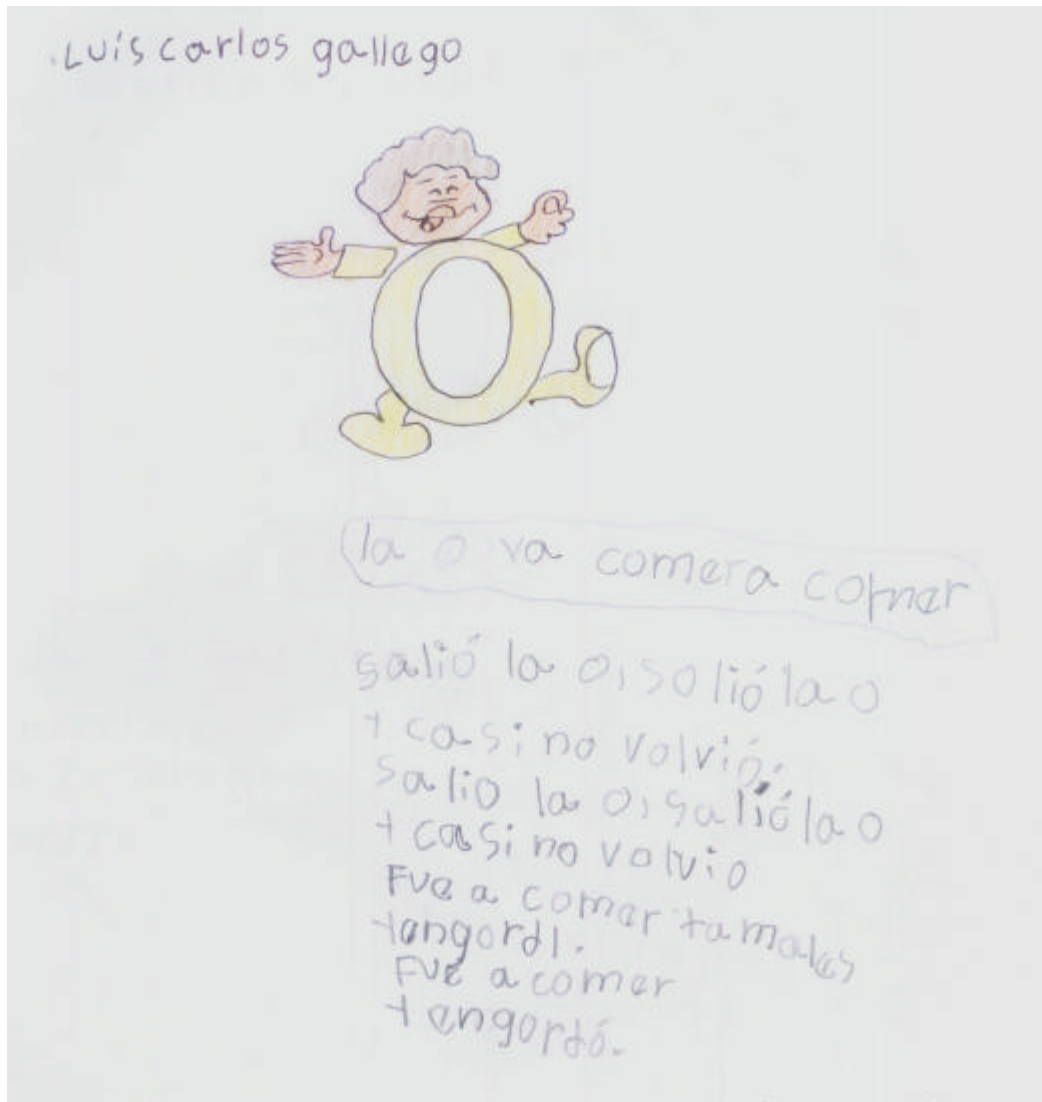 Luis carlos gallego
la o va comer a comer
salió la o, salió la o
+ casi no volvió.
salio la o, salió la o
+ casi no volvio
Fue a comer tamales
+engordI.
Fue a comer
+ engordó.